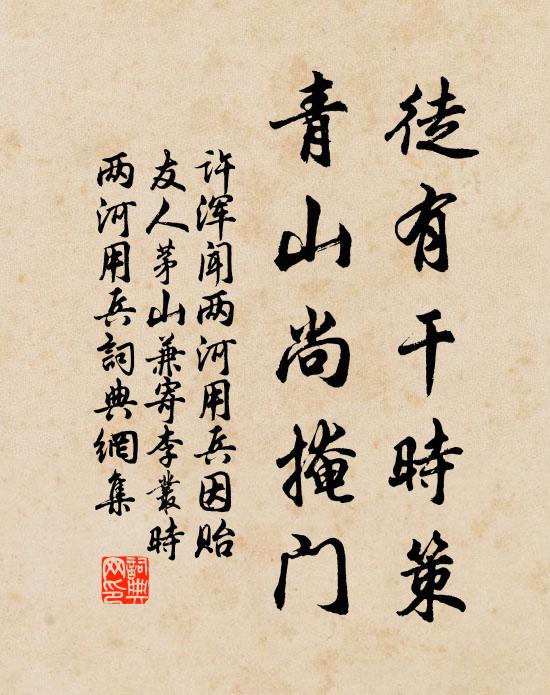 徒有干時策
青山尚掩门
许浑闻两河用兵因贻
友人茅山兼寄李叢時
两河用兵詞典網集
詞典
网印